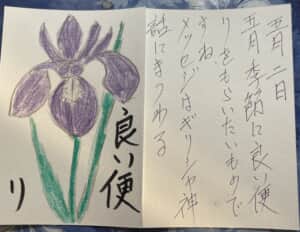 五月二日
五月 季節に良い便
りをもらいたいもので
すね、
メッセジはギリシャ神
話にまつわる
良い便
り